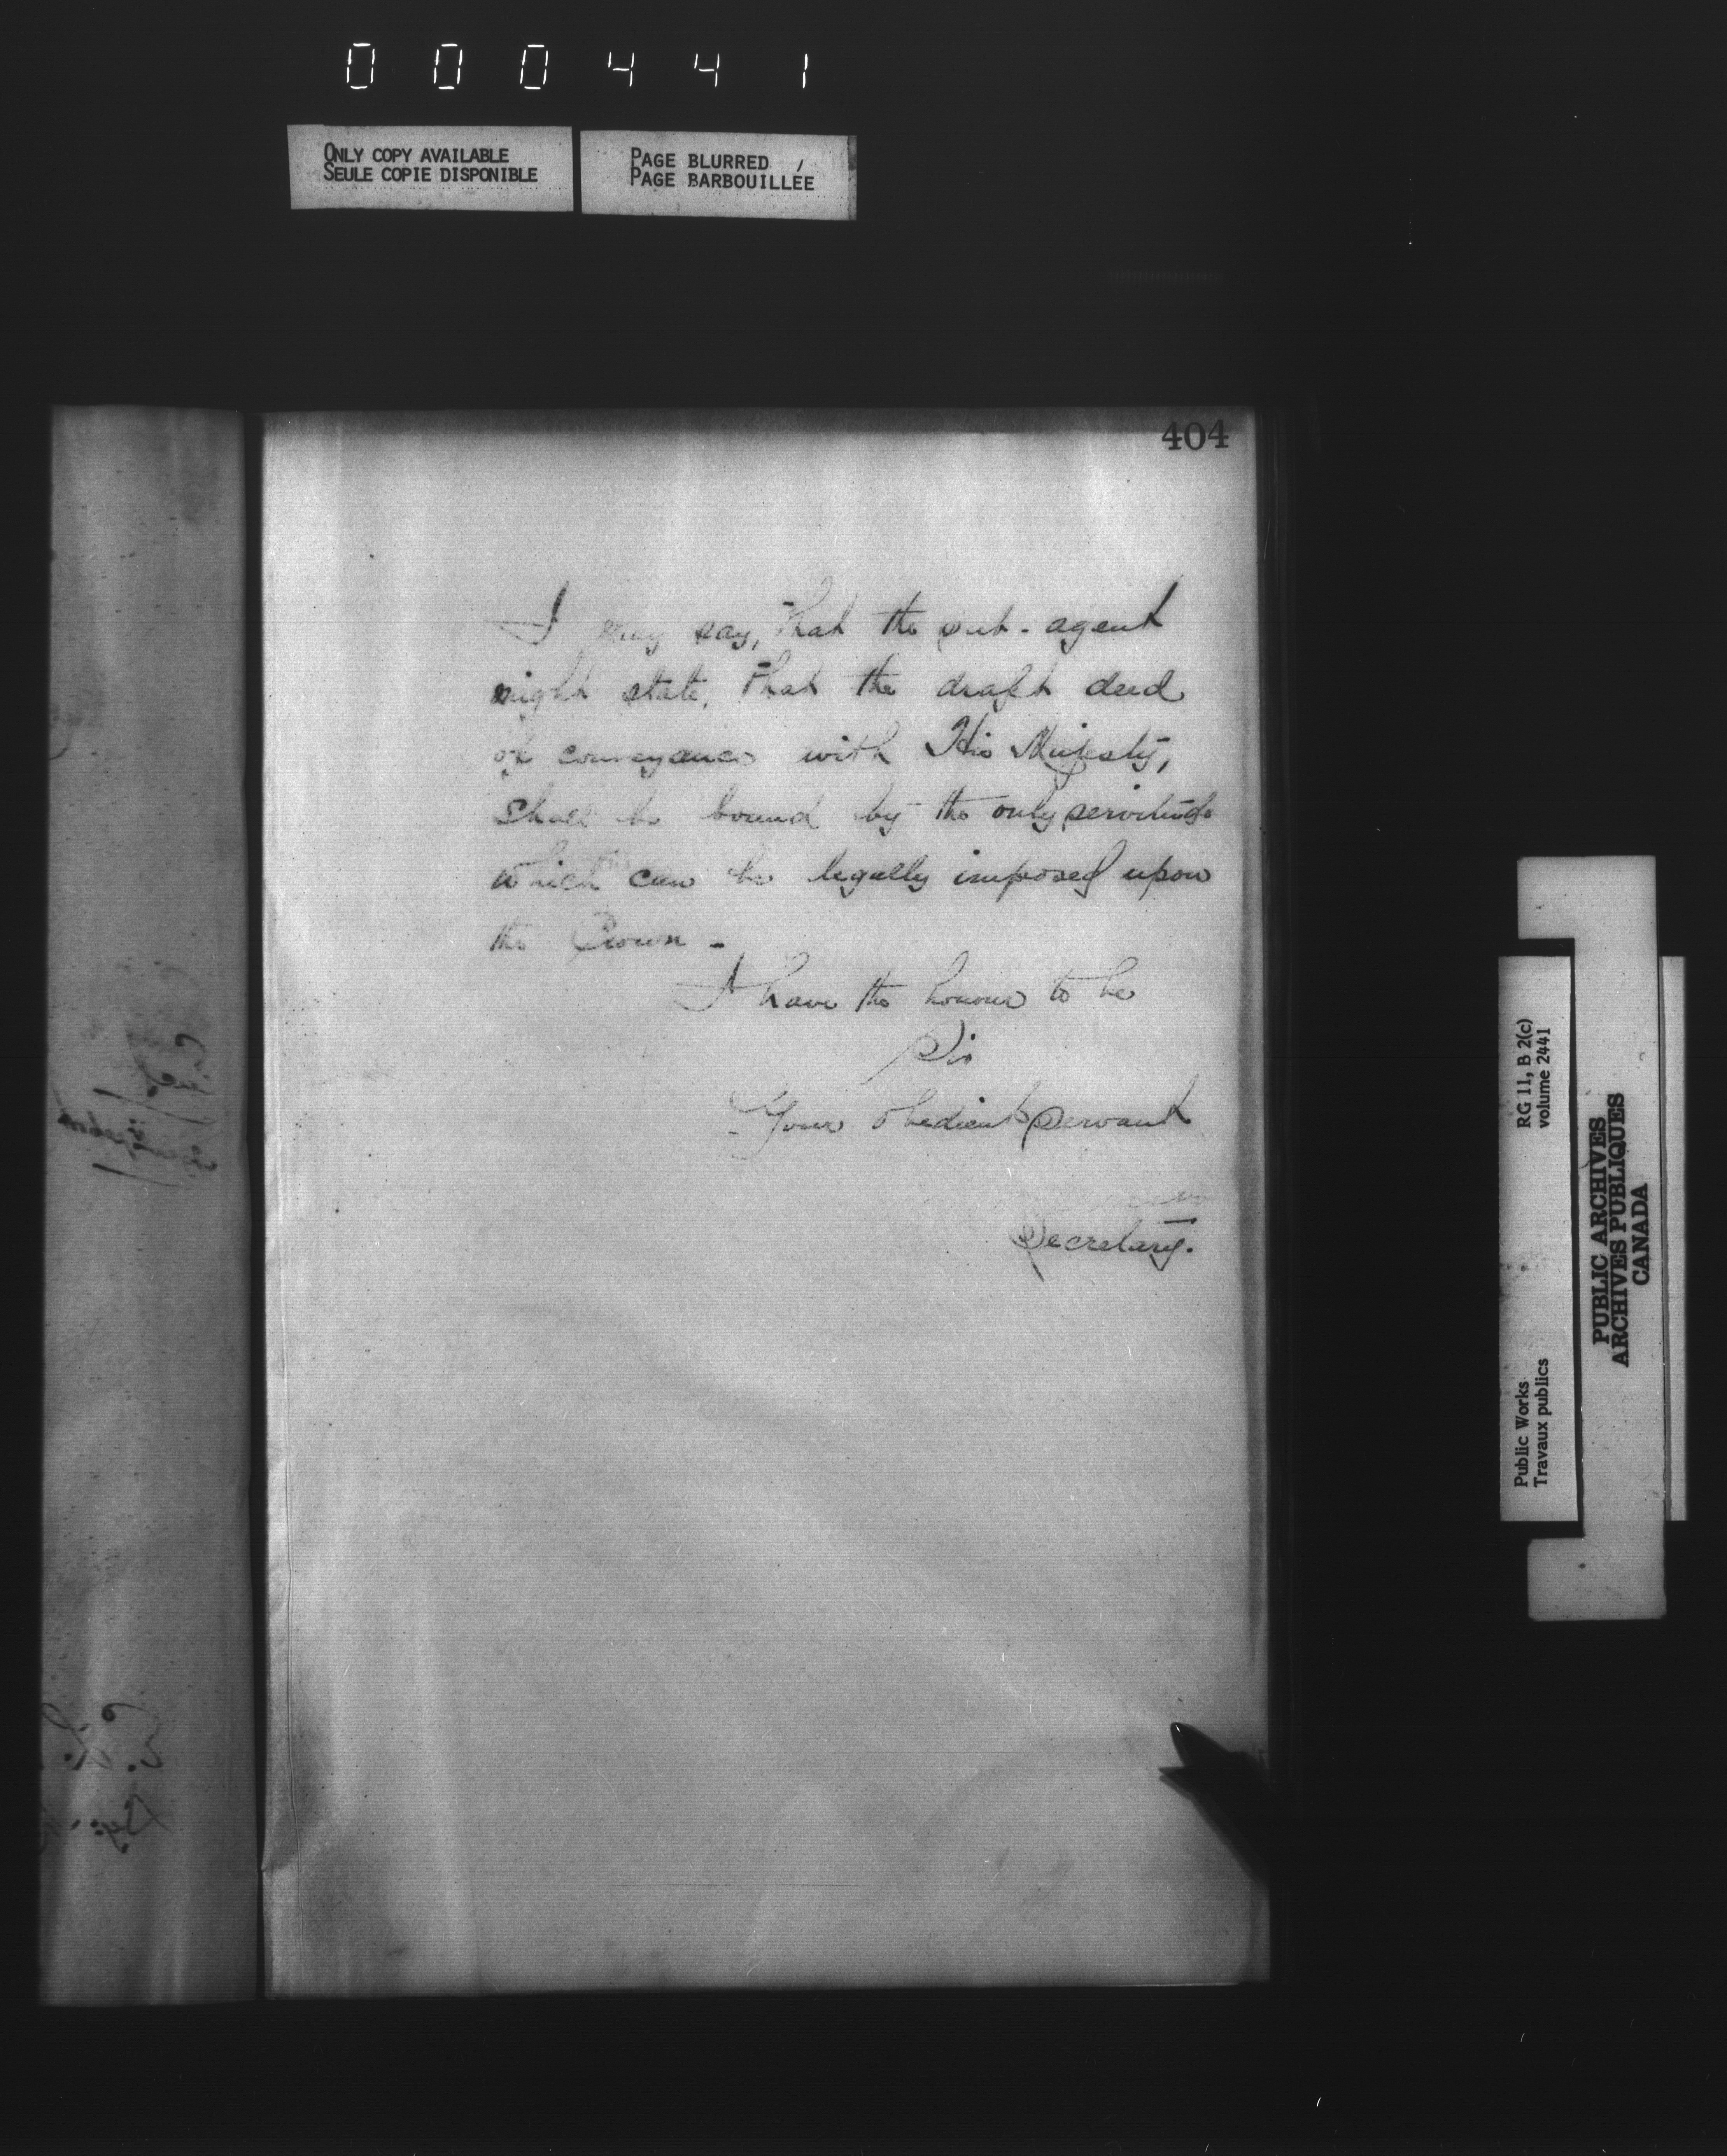 000441
ONLY COPY AVAILABLE
SEULE COPIE DISPONIBLE
PAGE BLURRED
PAGE BARBOUILLÉE
404
I may say, that the sub-agent
might state, that the draft deed
of conveyance with His Majesty,
shall be bound by the only servitude
which can be legally imposed upon
the Crown -
I have the honour to be
Sir
Your obedient servant
Secretary.
RG 11, B 2(c)
volume 2441
Public Works
Travaux publics
PUBLIC ARCHIVES
ARCHIVES PUBLIQUES
CANADA